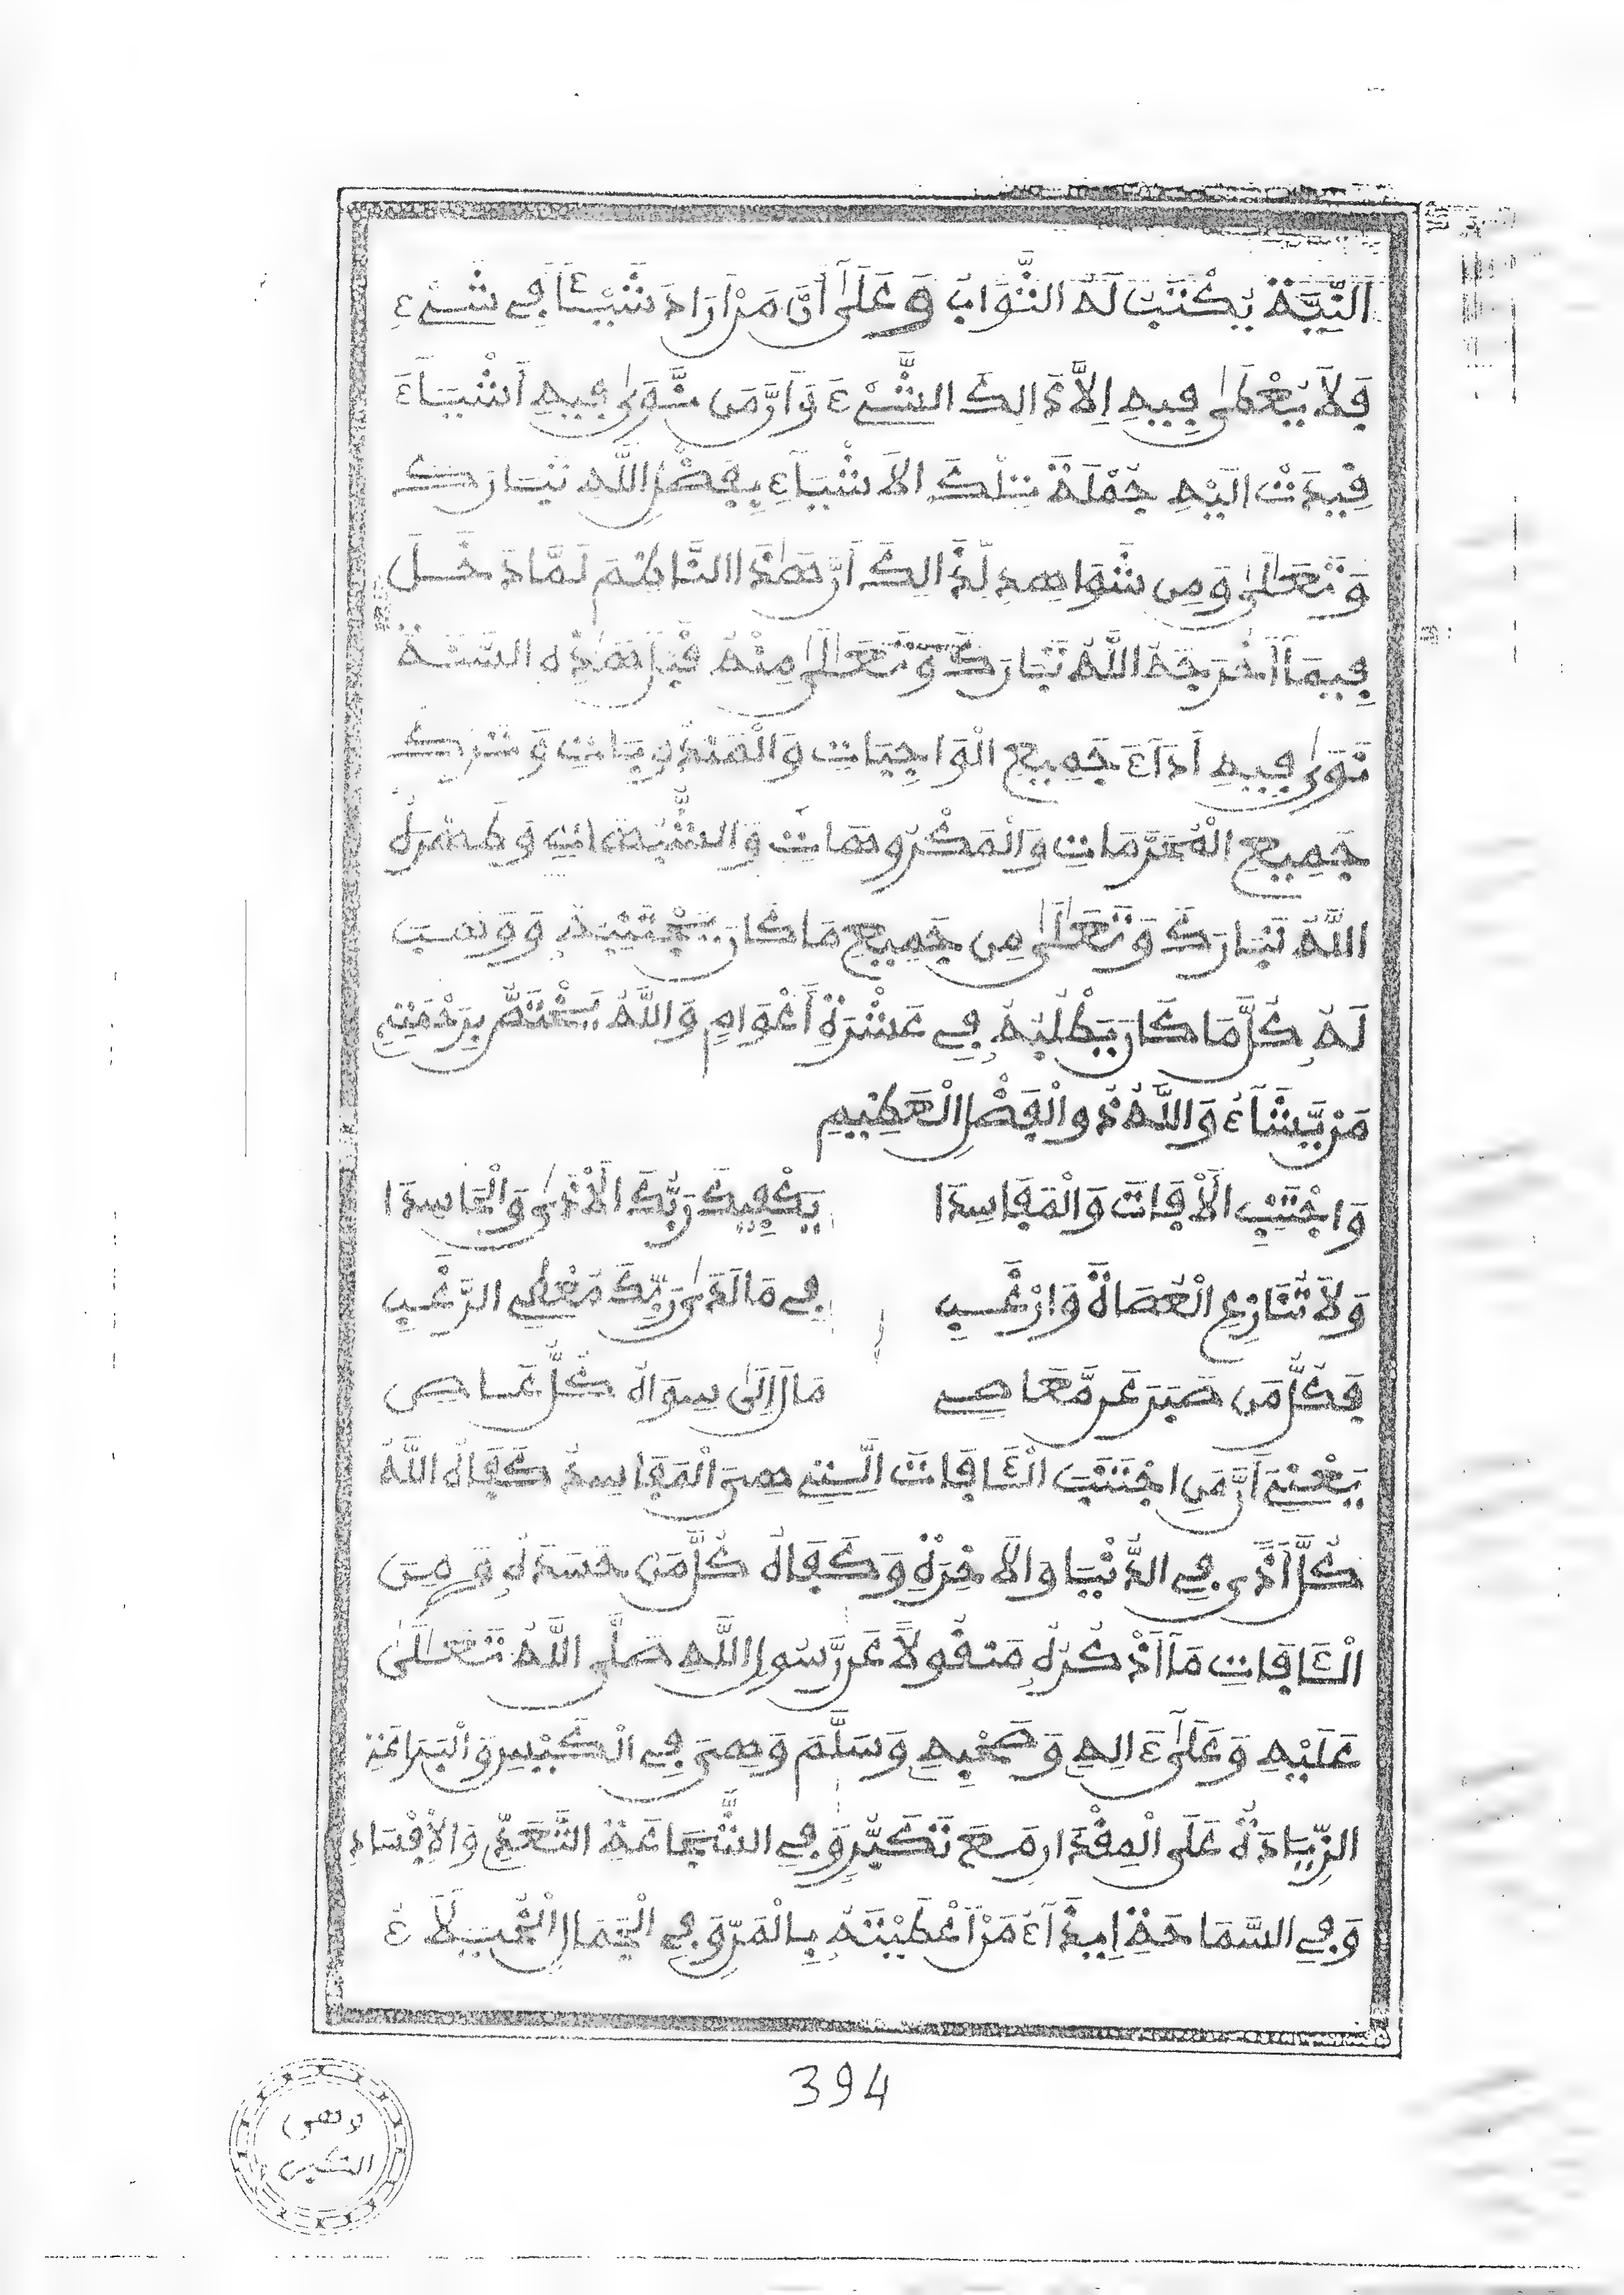 النِّيَّةِ يُكْتَبُ لَهُ الثَّوَابُ وَعَلَىٰ أَنَّ مَنْ أَرَادَ شَيْئًا فِي شَيْءٍ
فَلاَ يُعْطَىٰ فِيهِ إِلاَّ ذَالِكَ الشَّيْءَ وَأَنَّ مَن نَّوَىٰ فِيهِ أَشْيَاءَ
قِيدَتْ إِلَيْهِ جُمْلَةُ تِلْكَ الاَشْيَاءِ بِفَضْلِ اللَّهِ تَبَارَكَ
وَتَعَالَىٰ وَمِن شَوَاهِدِ لِذَالِكَ أَنَّ هَٰذَا النَّاظِمَ لَمَّا دَخَلَ
فِيمَا أَخْرَجَهُ اللَّهُ تَبَارَكَ وَتَعَالَىٰ مِنْهُ قَبْلَ هَٰذِهِ السَّنَةِ
نَوَىٰ فِيهِ أَدَاءَ جَمِيعِ الْوَاجِبَاتِ وَالْمَنْدُوبَاتِ وَتَرْكَ
جَمِيعِ الْمُحَرَّمَاتِ وَالْمَكْرُوهَاتِ وَالشُّبُهَاتِ وَطَهَّرَهُ
اللَّهُ تَبَارَكَ وَتَعَالَىٰ مِن جَمِيعِ مَا كَانَ يَجْتَنِبُهُ وَوَهَبَ
لَهُ كُلَّ مَا كَانَ يَطْلُبُهُ فِي عَشْرَةِ أَعْوَامٍ وَاللَّهُ يَخْتَصُّ بِرَحْمَتِهِ
مَنْ يَّشَاءُ وَاللَّهُ ذُو الْفَضْلِ الْعَظِيمِ
وَاجْتَنِبِ الْآفَاتَ وَالْمَفَاسِدَا يَكْفِيكَ رَبُّكَ الْأَذَىٰ وَالْحَاسِدَا
وَلاَ تُنَازِعِ الْعُصَاةَ وَارْغَبِ فِي مَا لَدَىٰ رَبِّكَ مُعْطِي الرَّغَبِ
فَكُلُّ مَن صَبَرَ عَن مَّعَاصِي مَالَ إِلَىٰ سِوَاهُ كُلُّ عَاصِ
يَعْنِي أَنَّ مَنِ اجْتَنَبَ الْآفَاتِ الَّتِي هِيَ الْمَفَاسِدُ كَفَاهُ اللَّهُ
كُلَّ أَذًى فِي الدُّنْيَا وَالاَخِرَةِ وَكَفَاهُ كُلَّ مَن حَسَدَهُ وَمِنَ
الْآفَاتِ مَا أَذْكُرُهُ مَنْقُولاً عَن رَّسُولِ اللَّهِ صَلَّى اللَّهُ تَعَالَىٰ
عَلَيْهِ وَعَلَىٰ ءَالِهِ وَصَحْبِهِ وَسَلَّمَ وَهِيَ فِي الْكَيْسِ وَالْبَرَاعَةِ
الزِّيَادَةُ عَلَى الْمِقْدَارِ مَعَ تَكَبُّرٍ وَفِي الشَّجَاعَةِ التَّعَدِّي وَالْإِفْسَادِ
وَفِي السَّمَاحَةِ إِيذَاءُ مَنْ أَعْطَيْتَهُ بِالْمَنِّ وَفِي الْجَمَالِ الْخُيَلاَءُ
394
وهى